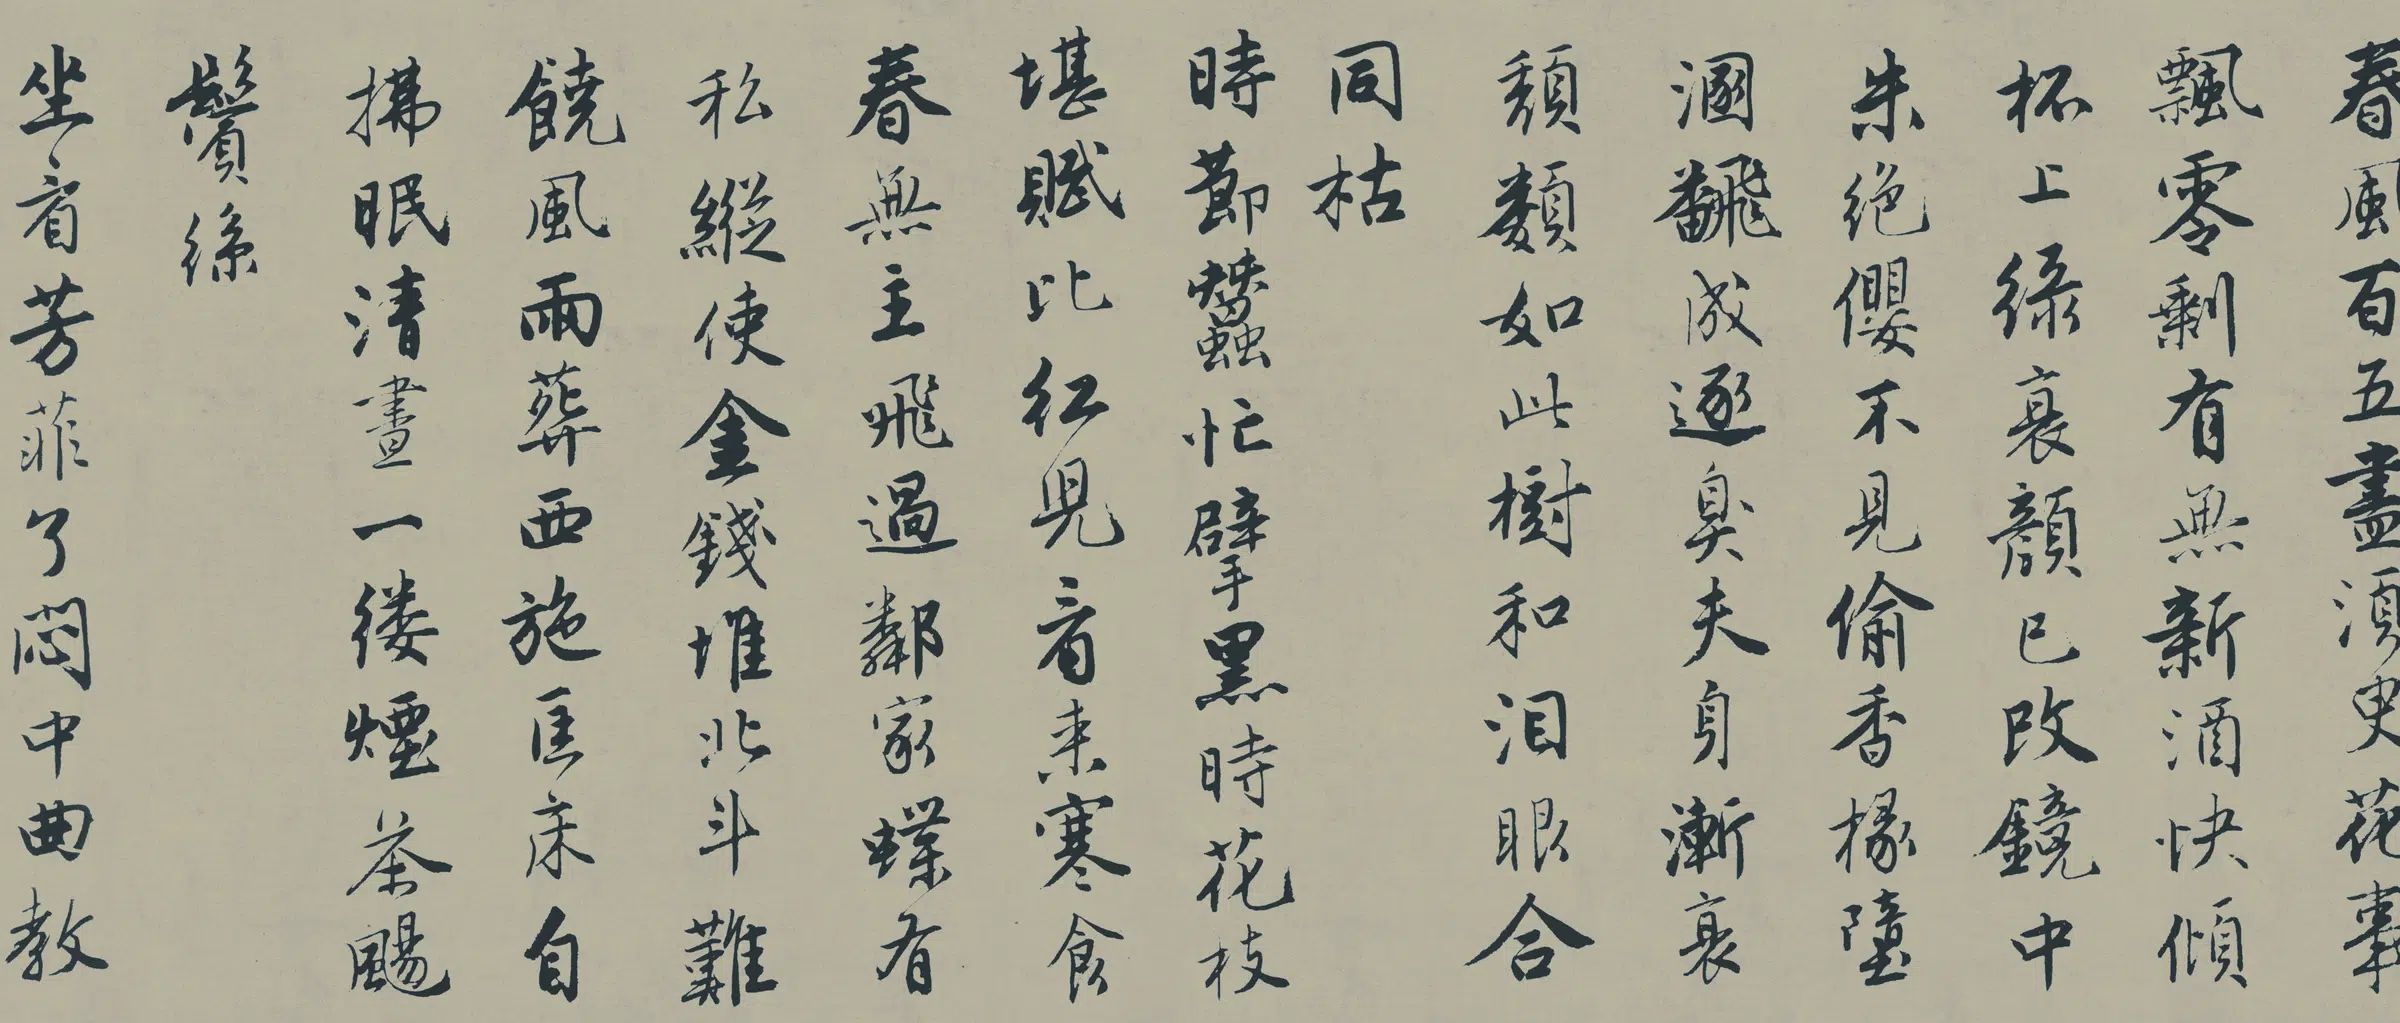 春風百五盡須臾花事
飄零剩有無新酒快傾
杯上綠衰顏已改鏡中
朱絕纓不見偷香椽墮
溷飜成逐臭夫身漸衰
頹類如此樹和泪眼合
同枯
時節蠶忙擘黑時花枝
堪賦比紅兒看來寒食
春無主飛過鄰家蝶有
私縱使金錢堆北斗難
饒風雨葬西施匡床自
拂眠清晝一縷煙茶颺
鬢絲
坐看芳菲了悶中曲教